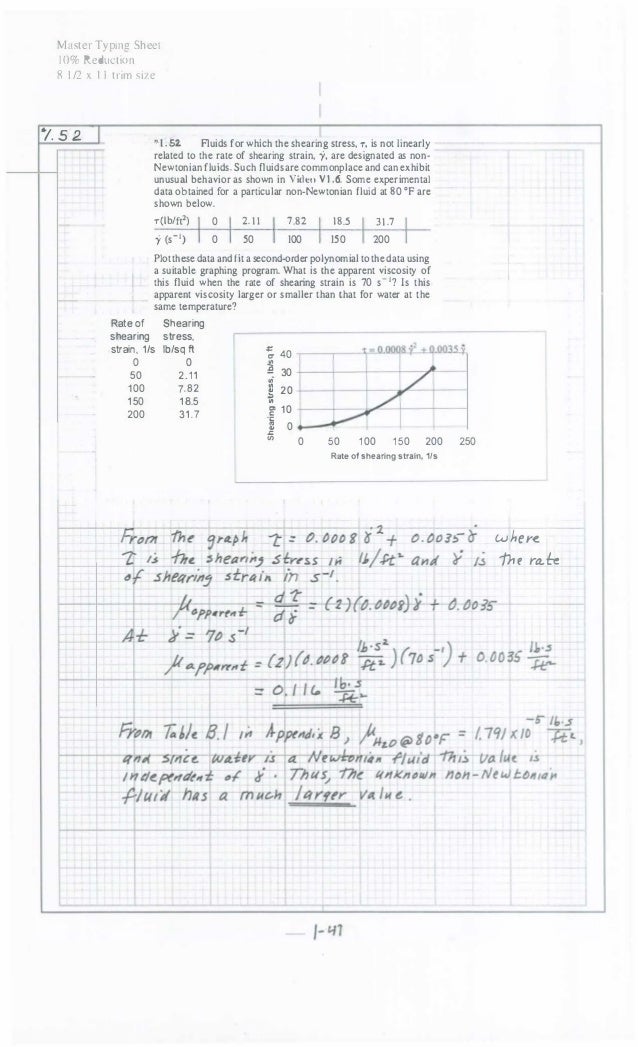 Master Typing Sheet
10% Reduction
8 1/2 x 11 trim size
*1.52
*1.52 Fluids for which the shearing stress, τ, is not linearly
related to the rate of shearing strain, γ̇, are designated as non-
Newtonian fluids. Such fluids are commonplace and can exhibit
unusual behavior as shown in Video V1.6. Some experimental
data obtained for a particular non-Newtonian fluid at 80 °F are
shown below.
τ(lb/ft²) | 0 | 2.11 | 7.82 | 18.5 | 31.7 |
γ̇ (s⁻¹) | 0 | 50 | 100 | 150 | 200 |
Plot these data and fit a second-order polynomial to the data using
a suitable graphing program. What is the apparent viscosity of
this fluid when the rate of shearing strain is 70 s⁻¹? Is this
apparent viscosity larger or smaller than that for water at the
same temperature?
Rate of Shearing
shearing stress,
strain, 1/s lb/sq ft
0 0
50 2.11
100 7.82
150 18.5
200 31.7
Shearing stress, lb/sq ft
τ = 0.0008 γ̇² + 0.0035 γ̇
40
30
20
10
0
0 50 100 150 200 250
Rate of shearing strain, 1/s
From the graph τ = 0.0008 γ̇² + 0.0035 γ̇ where
τ is the shearing stress in lb/ft² and γ̇ is the rate
of shearing strain in s⁻¹.
μ apparent = dτ/dγ̇ = (2)(0.0008) γ̇ + 0.0035
At γ̇ = 70 s⁻¹
μ apparent = (2)(0.0008 lb·s²/ft²)(70 s⁻¹) + 0.0035 lb·s/ft²
= 0.116 lb·s/ft²
From Table B.1 in Appendix B, μ H₂O @ 80°F = 1.791 x 10⁻⁵ lb·s/ft²,
and since water is a Newtonian fluid this value is
independent of γ̇. Thus, the unknown non-Newtonian
fluid has a much larger value.
1-47